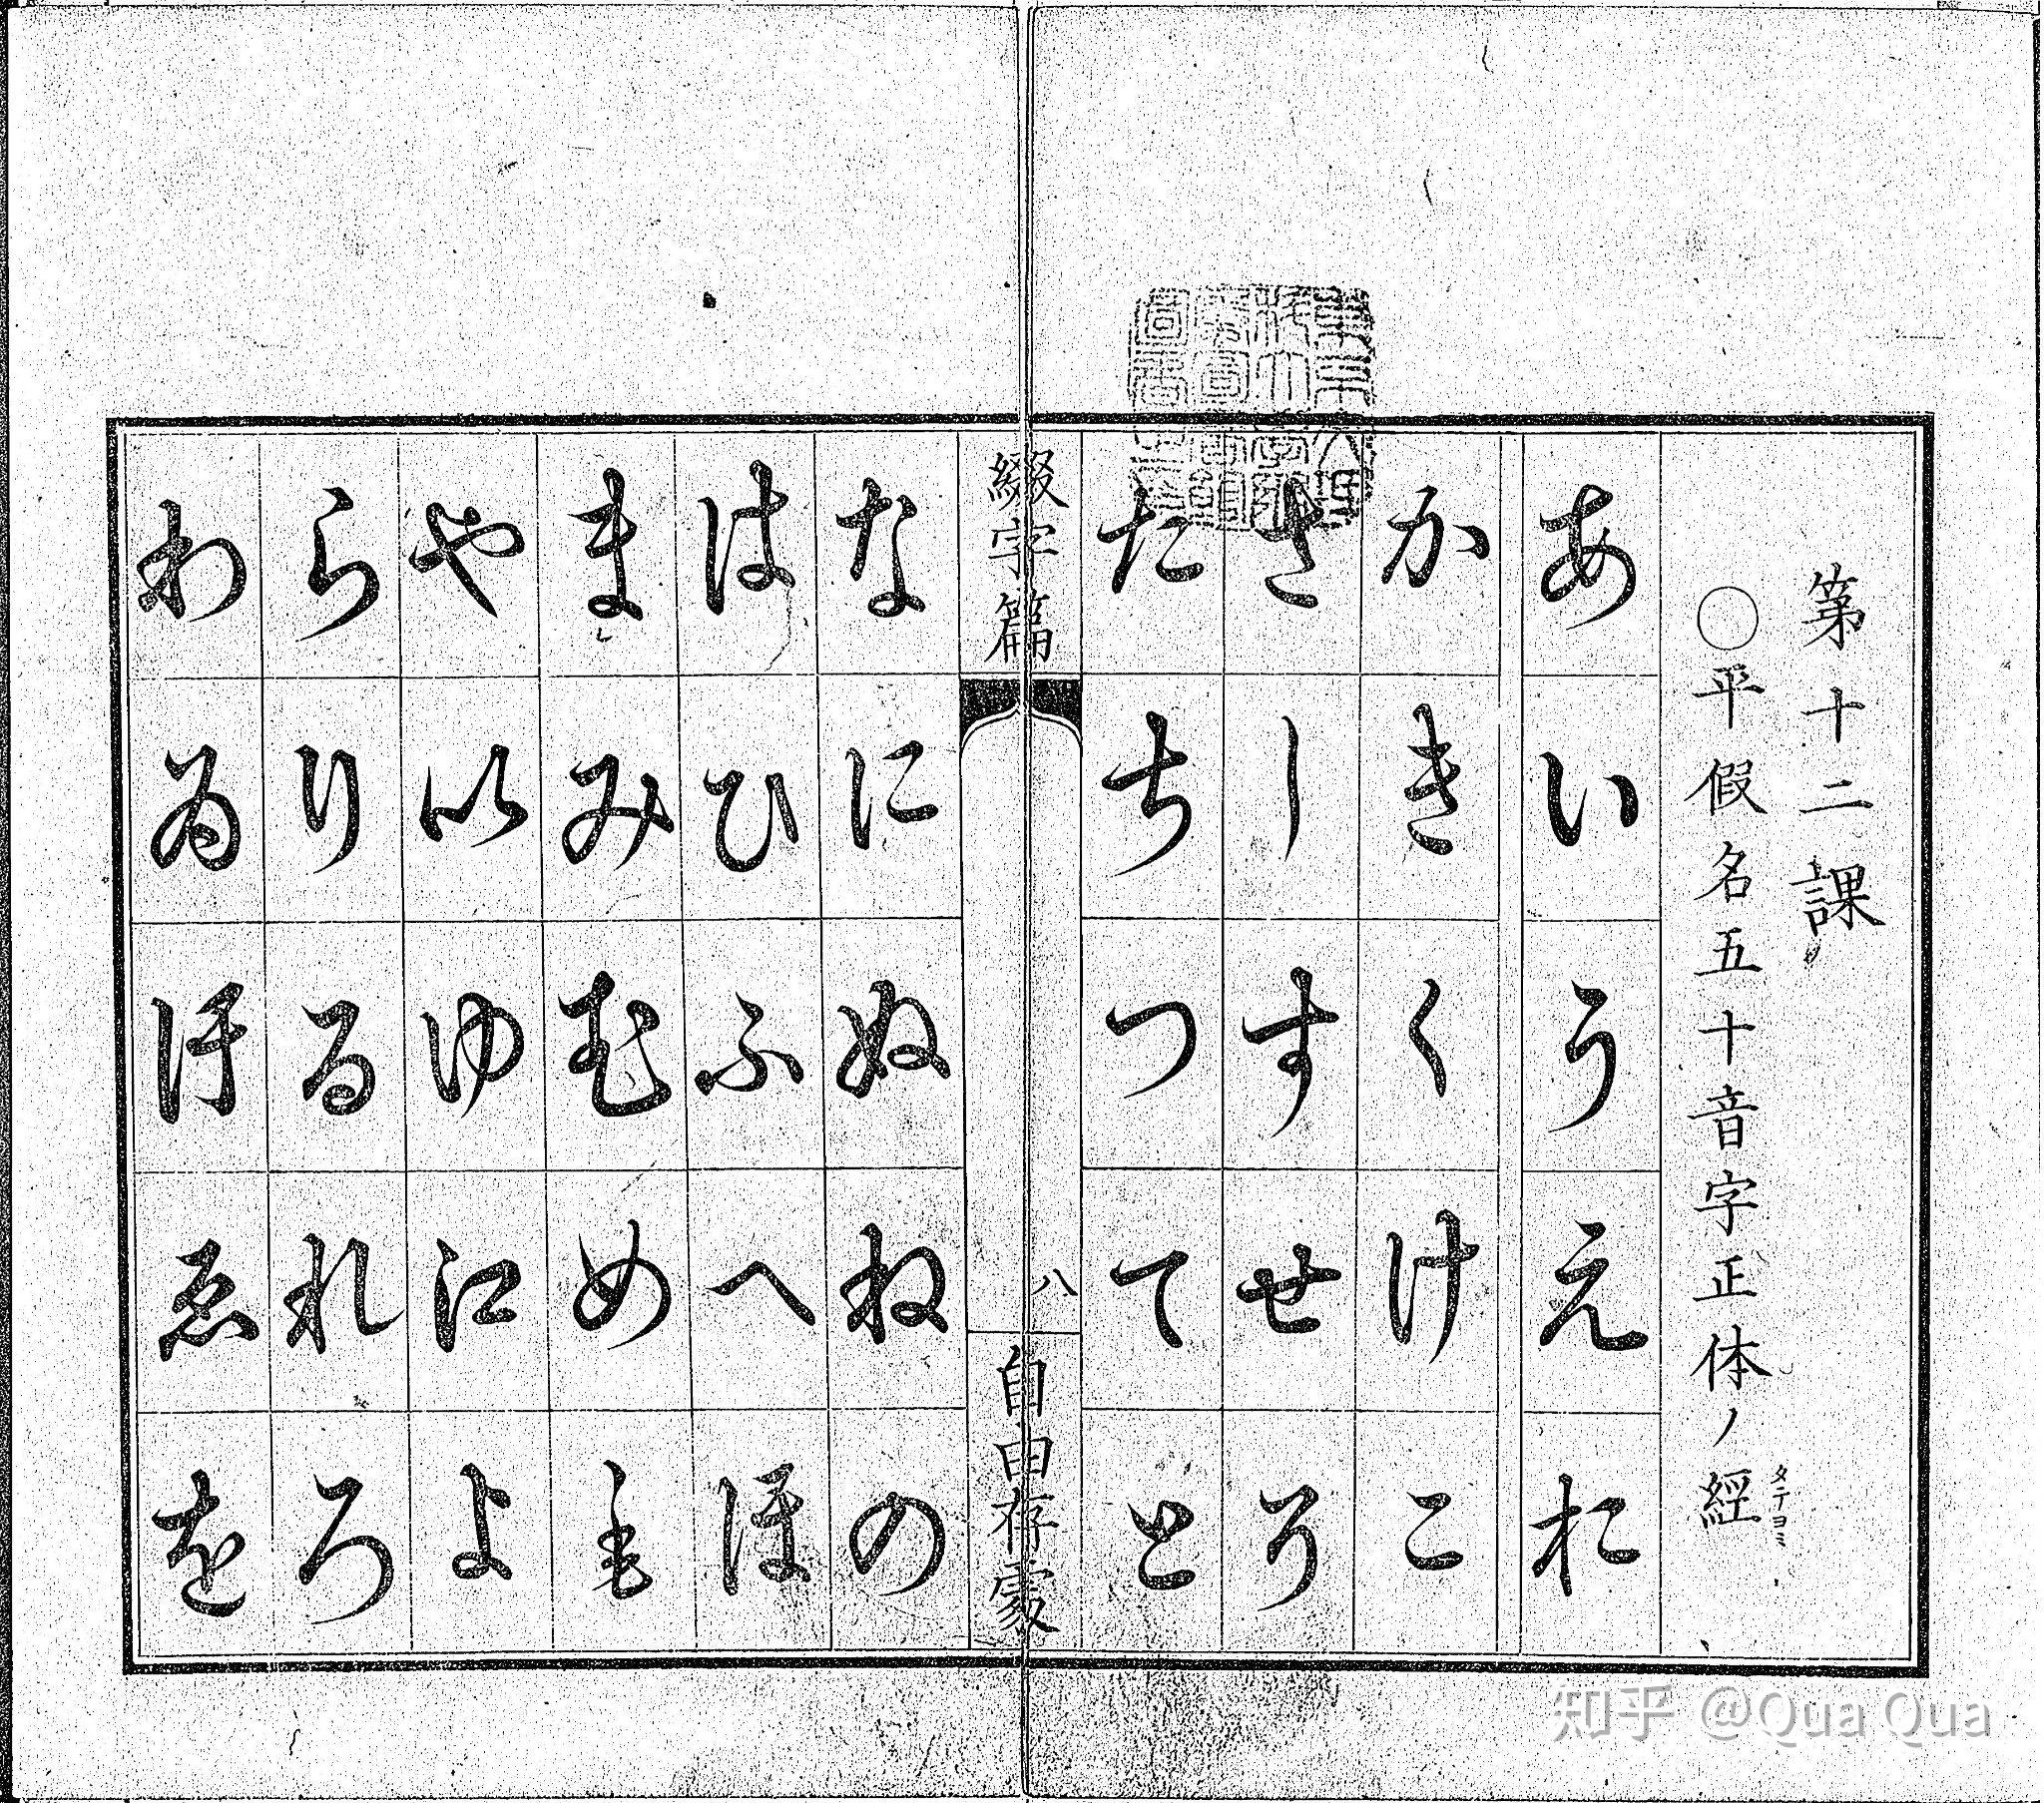 第十二課
○平假名五十音字正体ノ經
タテヨミ
あいうえお
かきくけこ
さしすせそ
たちつてと
綴字篇
八
自由存䝉
なにぬねの
はひふへほ
まみむめも
や以ゆ江よ
らりるれろ
わゐ汙ゑを
知乎 @Qua Qua